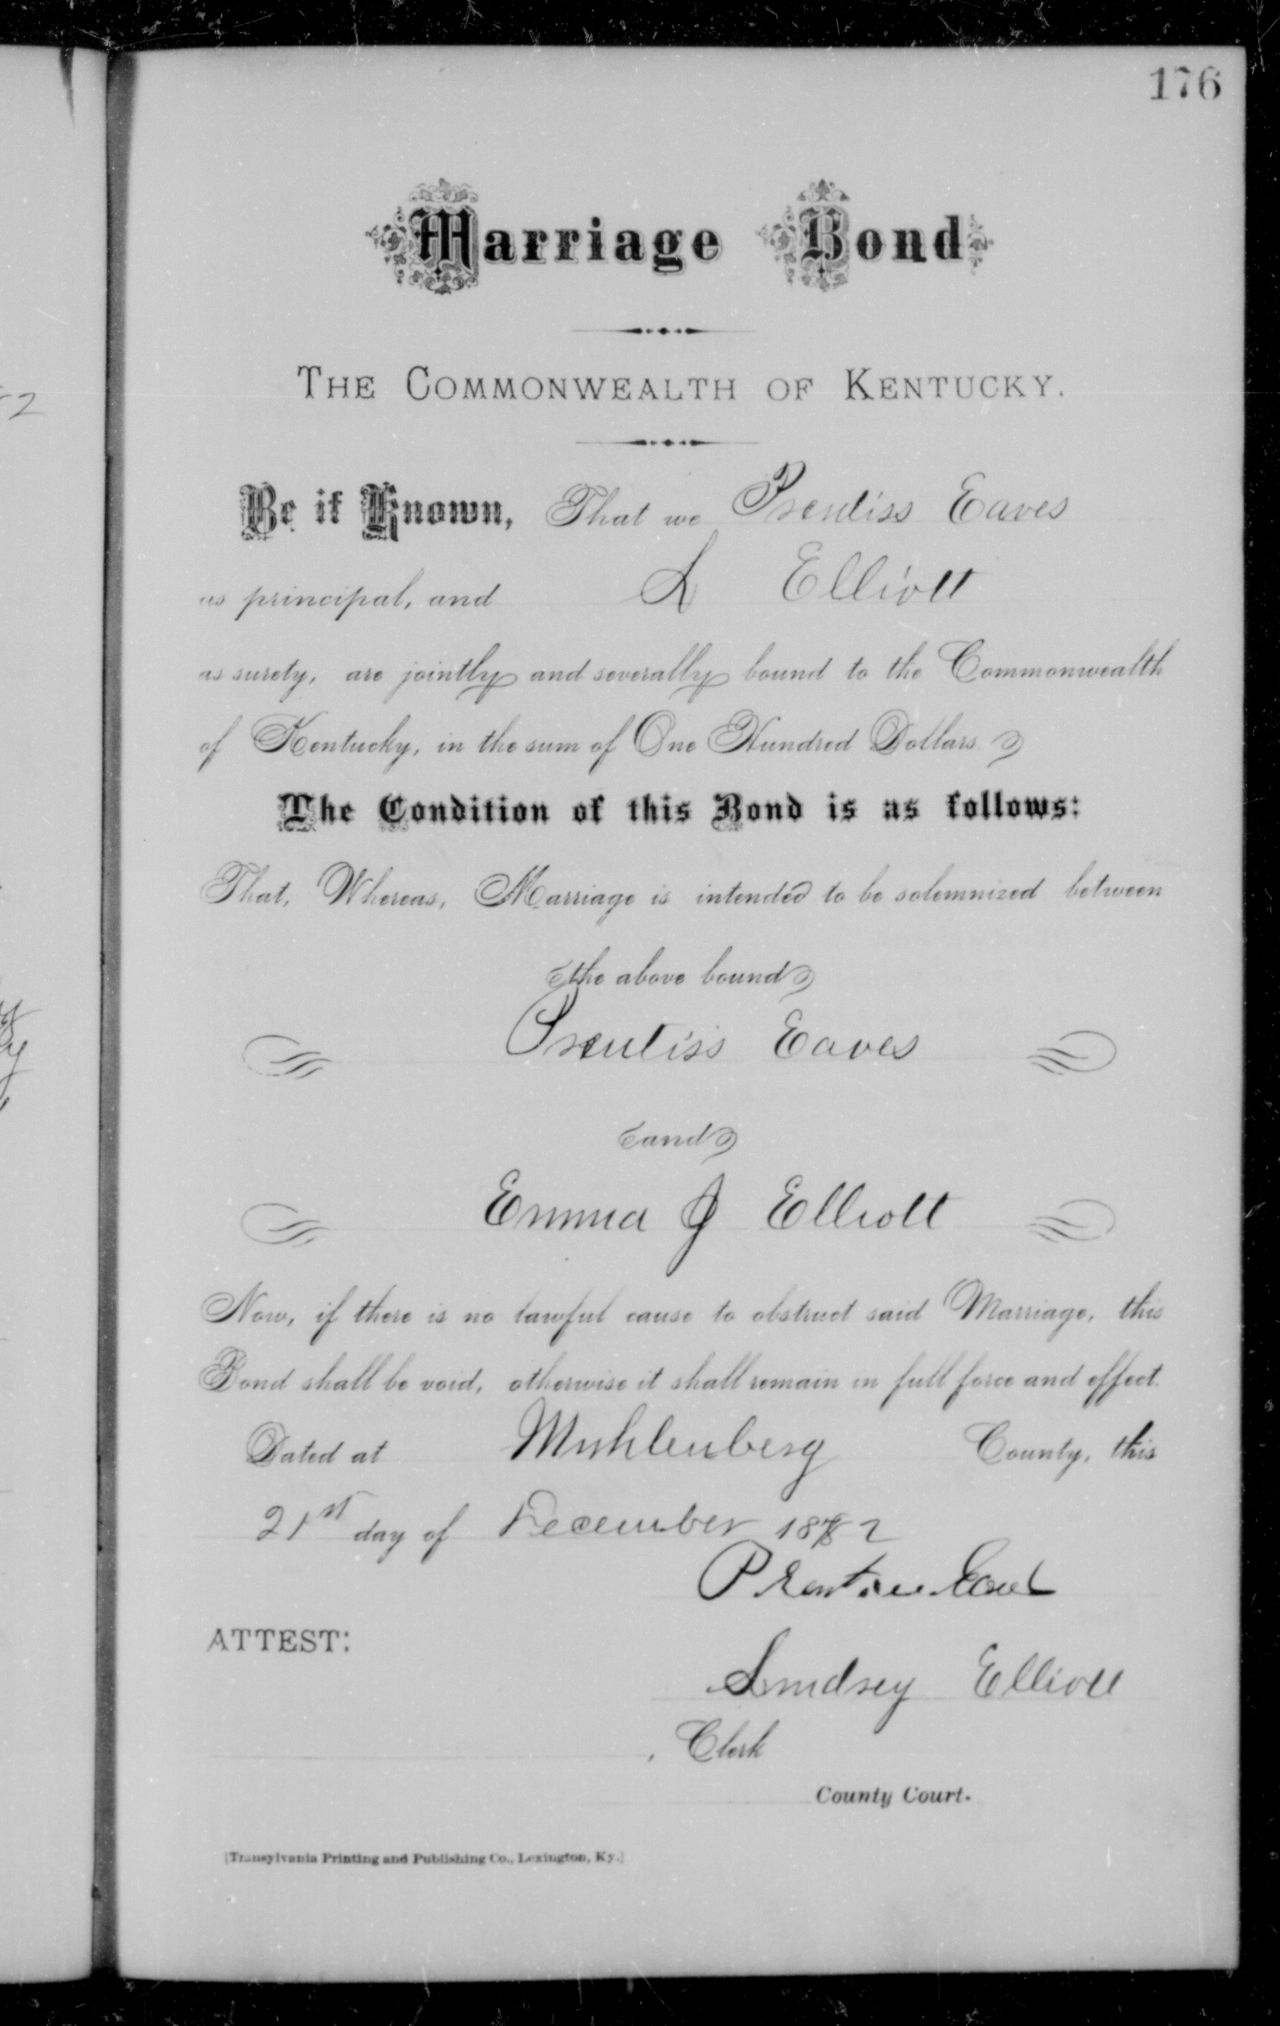 176
Marriage Bond
THE COMMONWEALTH OF KENTUCKY.
Be it Known, That we Prentiss Eaves
as principal, and L Elliott
as surety, are jointly and severally bound to the Commonwealth
of Kentucky, in the sum of One Hundred Dollars.
The Condition of this Bond is as follows:
That, Whereas, Marriage is intended to be solemnized between
the above bound
Prentiss Eaves
and
Emma J Elliott
Now, if there is no lawful cause to obstruct said Marriage, this
Bond shall be void, otherwise it shall remain in full force and effect.
Dated at Muhlenberg County, this
21st day of December 1882
Prentice Eaves
ATTEST:
Lindsey Elliott
, Clerk
County Court.
[Transylvania Printing and Publishing Co., Lexington, Ky.]